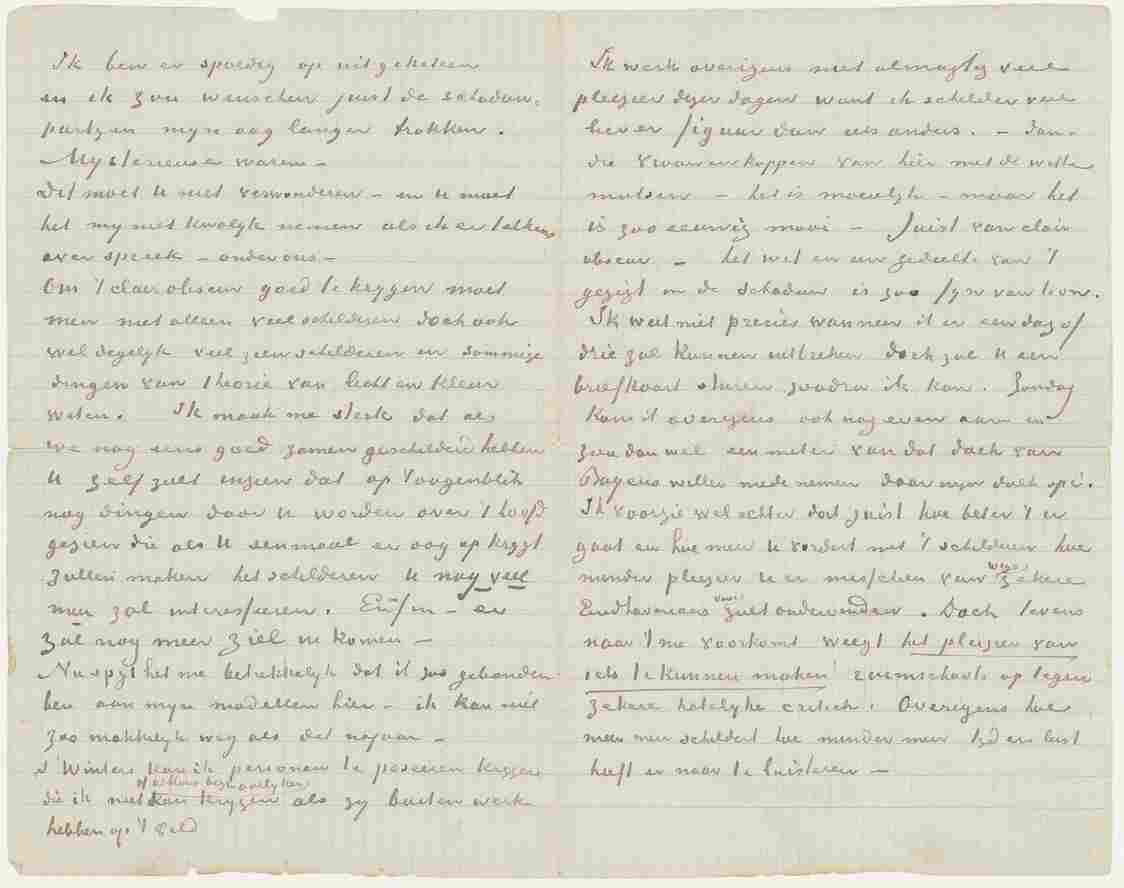 Ik ben er spoedig op uitgekeken
en ik zou wenschen juist de schaduw-
partijen mijn oog langer trokken.
Mysterieuser waren –
Dit moet U niet verwonderen – en U moet
het mij niet kwalijk nemen als ik er telkens
over spreek – onder ons –
Om ’t clair obscur goed te krijgen moet
men niet alleen veel schilderen doch ook
wel degelijk veel zien schilderen en sommige
dingen van theorie van licht en kleur
weten. Ik maak me sterk dat als
we nog eens goed zamen geschilderd hebben
U zelf zult inzien dat op ’t oogenblik
nog dingen door U worden over ’t hoofd
gezien die als U eenmaal er oog op krijgt
zullen maken het schilderen U nog veel
meer zal interesseren. Enfin – er
zal nog meer ziel in komen –
Nu spijt het me betrekkelijk dat ik zoo gebonden
ben aan mijn modellen hier – ik kan niet
zoo makkelijk weg als dit najaar –
s’ Winters kan ik personen te poseeren krijgen
of althans bezwaarlyker
die ik niet kan krijgen als zij buiten werk
hebben op ’t veld
Ik werk overigens met almagtig veel
pleizier dezer dagen want ik schilder veel
liever figuur dan iets anders. –
die vrouwenkoppen van hier met de witte
mutsen – het is moeielijk – maar het
is zoo eeuwig mooi – Juist van clair
obscur – het wit en een gedeelte van ’t
gezigt in de schaduw is zoo fijn van toon.
Ik weet niet precies wanneer ik er een dag of
drie zal kunnen uitbreken doch zal U een
briefkaart sturen zoodra ik kan. Zondag
kom ik overigens ook nog even aan en
zou dan wel een meter van dat doek van
Baijens willen mede nemen daar mijn doek op is.
Ik voorzie wel echter dat juist hoe beter ’t er
gaat en hoe meer U vordert met ’t schilderen hoe
minder pleizier U er misschien van wege zekere
Eindhovenaars van zult ondervinden. Doch tevens
naar ’t me voorkomt weegt het pleizier van
iets te kunnen maken evenschoots op tegen
zekere hatelijke critiek. Overigens hoe
meer men schildert hoe minder men tijd en lust
heeft er naar te luisteren –